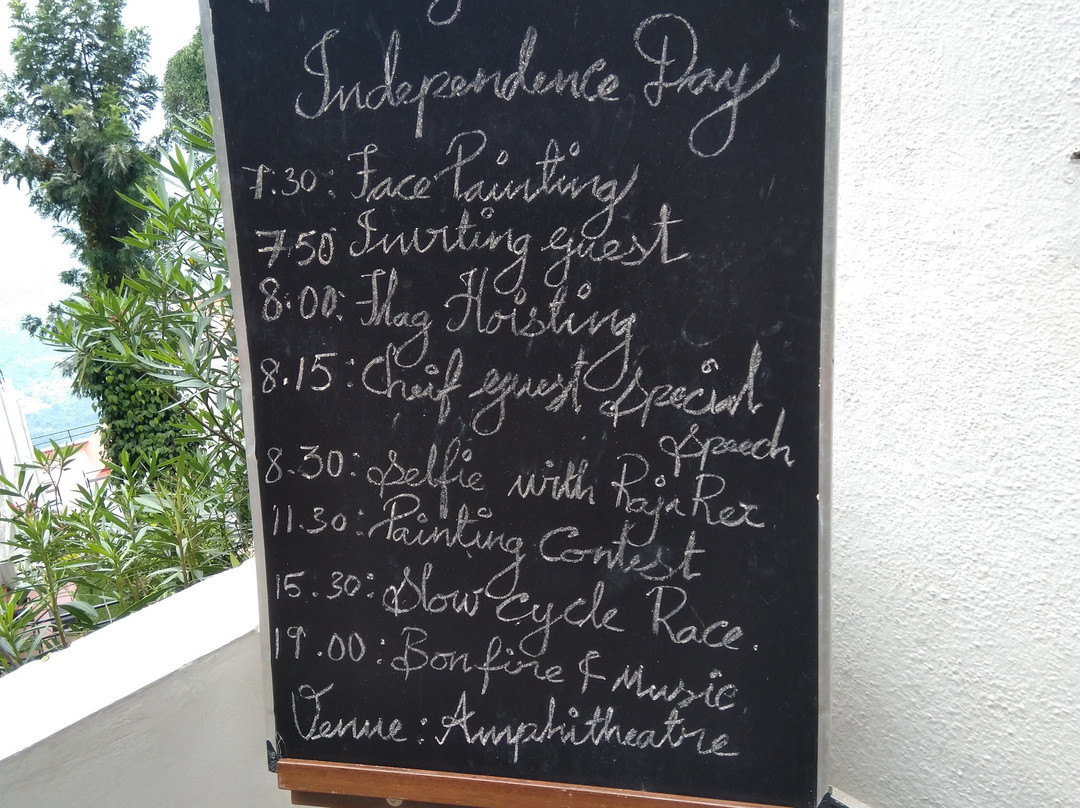 Independence Day
7.30: Face Painting
750 Inviting guest
8:00: Flag Hoisting
8.15: Cheif guest special
speech
8.30: Selfie with Raja Rex
11.30: Painting Contest
15.30: Slow cycle Race.
19.00: Bonfire & Music.
Venue: Amphitheatre